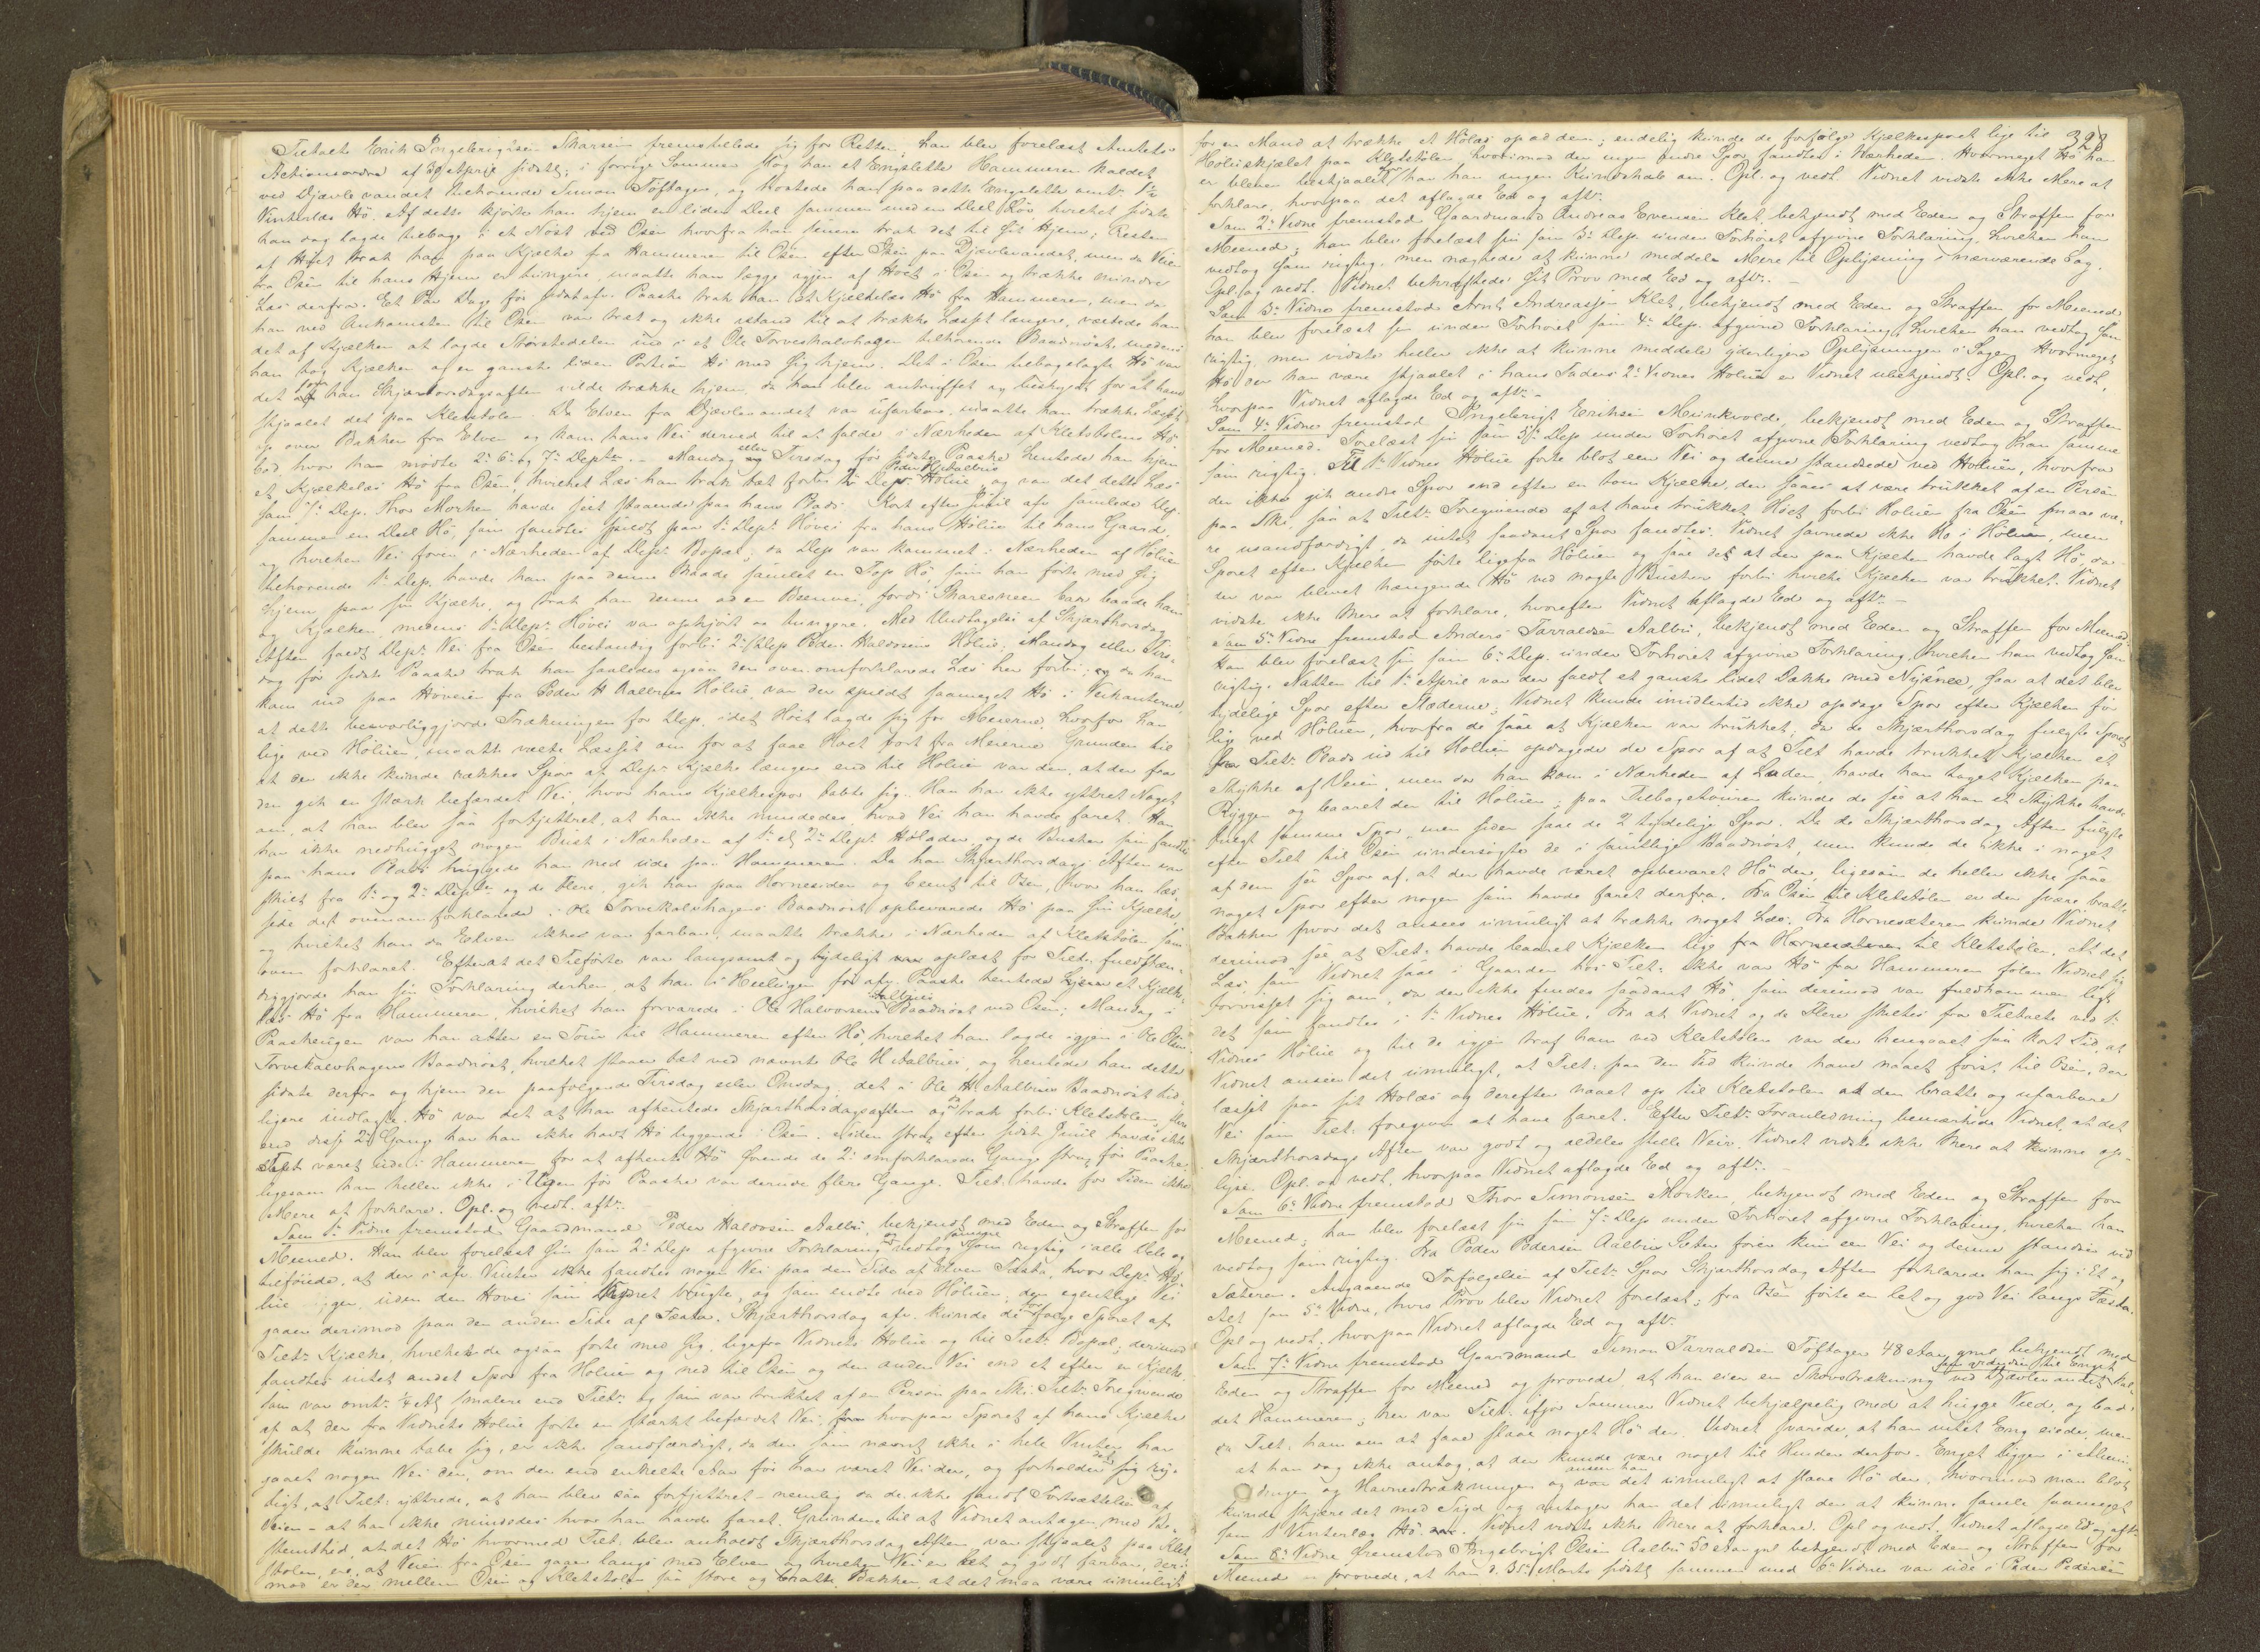 Tiltalte Erik Ingebrigtsen Skarsem fremstillede sig for Retten, han blev forelæst Amtets
Actionsordre af 30 April sidstl; i forrige Sommer slog han et Engslette Hammeren kaldet
ved Djævlevandet tilhørende Simon Toftager, og høstede han paa dette Engslette omtr. 1½
Vinterlæs Hö. Af dette kjörte han hjem en liden Deel sammen med en Deel Löv hvilket sidste
han dog lagde tilbage i et Nöst ved Osen hvorfra han senere trak det til sit Hjem; Resten
af Höet trak han paa Kjælke fra Hammeren til Osen efter Isen paa Djævlevandet, men da Veien
fra Osen til hans Hjem er tungere, maatte han lægge igjen af Höet i Osen og trække mindre
Læs derfra. Et Par Dage för sidstafv. Paaske trak han et Kjælkelæs Hö fra Hammeren, men da
han ved Ankomsten til Osen var træt og ikke istand til at trække Læsset længere, væltede han
det af Kjælken og lagde Störstedelen ind i et Ole Torveskalvhagen tilhörende Baadnöst, medens
han tog Kjælken og en ganske liden Portion Hö med sig hjem. Det i Osen tilbagelagte Hö var
det som han Skjærthorsdagsaften vilde trække hjem da han blev antruffet og beskyldt for at have
stjaalet det paa Kletstölen. Da Elven fra Djævlevandet var ufarbar, maatte han trække Læsset
op over Bakken fra Elven og kom hans Vei derved til at falde i Nærheden af Kletstölens Hö-
lod hvor han mödte 2de 6te og 7de Depte. – Mandag eller Tirsdag för sidste Paaske hentede han hjem
et Kjælkelæs Hö fra Osen, hvilket Læs han trak tæt forbi 2 Dept Peder H Aalbus Hölue, og var det dette Læs
som 7de Dep. Thor Morken havde seet staaende paa hans Plads. Kort efter Juul afv samlede Dep
sammen en Deel Hö, som fandtes spildt paa 1ste Depts Hövei fra hans Hölue til hans Gaard,
og hvilken Vei förer i Nærheden af Depts Bopæl; da Dep var kommet i Nærheden af Höluen
tilhörende 1ste Dep. havde han paa denne Maade samlet en Top Hö, som han förte med sig
hjem paa sin Kjælke, og trak han denne ad en Beenvei, fordi Skaresneen bar baade ham
og Kjælken, medens 1ste Depts Hövei var opkjört og tungere. Med Undtagelse af Skjærthorsdag
Aften faldt Depts Vei fra Osen bestandig forbi 2de Dep Peder Haldorsens Hölue; Mandag eller Tirs-
dag för sidste Paaske trak han saaledes ogsaa den oven omforklarede Læs her forbi; og da han
kom ind paa Höveien fra Peder H Aalbus Hölue, var der spildt saameget Hö i Veikanterne,
at dette besværliggjorde Trækningen for Dep, idet Höet lagde sig for Meierne, hvorfor han
lige ved Höluen, maatte vælte Læsset om for at faae Höet bort fra Meierne. Grunden til
at der ikke kunde rækkes Spor af Depts Kjælke længere end til Höluen var den, at der fra
den gik en stærk befærdet Vei, hvor hans Kjælkespor tabte sig. Han har ikke yttret Noget
om, at han blev saa fortjettret, at han ikke mindedes, hvad Vei han havde faret. Han
har ikke nedhugget nogen Busk i Nærheden af 1ste el 2de Depts Höladen og de Buske som fandtes
paa hans Plads huggede han ned ude paa Hammeren. Da han Skjærthorsdags Aften var
skilt fra 1ste og 2de Depte og de Flere, gik han paa Hornesiden og beent til Osen, hvor han læs-
sede det ovenomforklarede i Ole Torvekalvhagens Baadnöst opbevarede Hö paa sin Kjælke
og hvilket han da Elven ikke var farbar, maatte trække i Nærheden af Kletstölen som
oven forklaret. Efterat det Tilförte var langsomt og tydeligt oplæst for Tiltr. fuldstæn-
diggjorde han sin Forklaring derhen, at han i Heeligen för afv. Paaske hentede hjem et Kjælk-
læs Hö fra Hammeren, hvilket han forvarede i Ole Halvorsens Aalbus Baadnöst ved Osen; Mandag i
Paaskeugen var han atter en Tour til Hammeren efter Hö, hvilket han lagde igjen i Ole Olsen
Torvekalvhagens Baadnöst, hvilket staaer tæt ved nævnte Ole H Aalbus, og hentede han dette
sidste derfra og hjem den paafölgende Tirsdag eller Onsdag; det i Ole H. Aalbus Baadnöst tid-
ligere indlagte Hö var det at han afhentede Skjærthorsdagsaften og da trak forbi Kletstölen. Mere
end disse 2de Gange har han ikke havt Hö liggende i Osen. Siden strax efter sidste Juul havde ikke
Tiltr været ude i Hammeren for at afhente Hö förend de 2de omforklarede Gange strax för Paaske
ligesom han heller ikke i Ugen för Paaske var derude flere Gange. Tiltr. havde for Tiden ikke
Mere at forklare. Opl. og vedt. aftr.
Som 1ste Vidne fremstod Gaardmand Peder Haldorsen Aalbu, bekjendt med Eden og Straffen for
Meened. Han blev forelæst sin som 2de Dep afgivne Forklaring og vedtog samme som rigtig i alle Dele og
tilföiede, at der i afv Vinter ikke fandtes nogen Vei paa den Side af Elven Fæsta, hvor Depts Hö-
lue ligger, uden den Hövei som Vidnet brugte, og som endte ved Höluen; den egentlige Vei
gaaer derimod paa den anden Side af Fæsta. Skjærthorsdag afv. kunde de forfölge Sporet af
Tiltes Kjælke, hvilket de ogsaa förte med sig, ligefra Vidnets Hölue og til Tiltes Bopæl; derimod
fandtes intet andet Spor fra Höluen og ned til Osen og den anden Vei end et efter en Kjælke
som var omtr. ¼ Al smalere end Tiltes og som var trukket af en Person paa Ski. Tiltes Foregivende
af at der fra Vidnets Hölue förte en stærkt befærdet Vei, hvorpaa Sporet af hans Kjælke
skulde kunne tabe sig, er ikke sandfærdigt, da der som nævnt ikke i hele Vinter har
gaaet nogen Vei der, om der end enkelte Aar för har været Vei der, og forholder det sig rig-
tigt, at Tiltr. yttrede, at han blev saa fortjettret – nemlig da de ikke fandt Fortsættelse af
Veien – at han ikke mindedes hvor han havde faret. Grundene til at Vidnet antager med Be-
stemthed, at det Hö hvormed Tiltr. blev anholdt Skjærthorsdag Aften var stjaalet paa Klet-
stölen, ere, at Veien fra Osen gaaer langs med Elven og hvilken Vei er let og godt farbar, deri-
mod er der mellem Osen og Kletstölen saa store og bratte Bakker, at det maa være umuligt
393
for en Mand at trække et Hölæs op ad dem; endelig kunde de forfölge Kjælkesporet lige til
Höleiskjælet paa Kletstölen, hvorimod der ingen andre Spor fandtes i Nærheden. Hvormeget Hö han
er bleven bestjaalet for har han ingen Kundskab om. Opl. og vedt. Vidnet vidste ikke Mere at
forklare, hvorpaa det aflagde Ed og aftr.
Som 2de Vidne fremstod Gaardmand Andreas Evensen Klet, bekjendt med Eden og Straffen for
Meened; han blev forelæst sin som 3de Dep. under Forhöret afgivne Forklaring, hvilken han
vedtog som rigtig, men nægtede at kunne meddele Mere til Oplysning i nærværende Sag.
Opl. og vedt. Vidnet bekræftede sit Prov med Ed og aftr. –
Som 3de Vidne fremstod Arnt Andreassen Klet, bekjendt med Eden og Straffen for Meened
han blev forelæst sin under Forhöret som 4de Dep. afgivne Forklaring, hvilken han vedtog som
rigtig, men vidste heller ikke at kunne meddele yderligere Oplysninger i Sagen. Hvormeget
Hö der kan være stjaalet i hans Faders 2de Vidnes Hölue er Vidnet ubekjendt. Opl. og vedt,
hvorpaa Vidnet aflagde Ed og aftr. –
Som 4de Vidne fremstod Ingebrigt Eriksen Munkvold, bekjendt med Eden og Straffen
for Meened. Forelæst sin som 5te Dep. under Forhöret afgivne Forklaring vedtog han samme
som rigtig. Til 1ste Vidnes Hölue förte blot een Vei og denne standsede ved Höluen, hvorfra
der ikke gik andre Spor end efter en tom Kjælke, der saaes at være trukket af en Person
paa Ski, saa at Tiltes Foregivende af at have trukket Höet forbi Höluen fra Osen maae væ-
re usandfærdigt, da intet saadant Spor fandtes. Vidnet savnede ikke Hö i Höluen, men
Sporet efter Kjælken förte ligefra Höluen og saae det at der paa Kjælken havde lagt Hö, da
der var blevet hængende Hö ved nogle Buske forbi hvilke Kjælken var trukket. Vidnet
vidste ikke Mere at forklare, hvorefter Vidnet aflagde Ed og aftr. –
Som 5te Vidne fremstod Anders Tarraldsen Aalbu, bekjendt med Eden og Straffen for Meened
han blev forelæst sin som 6te Dep. under Forhöret afgivne Forklaring, hvilken han vedtog som
rigtig. Natten til 1ste April var der faldt et ganske lidet Dække med Nysnee, saa at det blev
tydelige Spor efter Fæderne; Vidnet kunde imidlertid ikke opdage Spor efter Kjælken för
lige ved Höluen, hvorfra de saae at Kjælken var trukket; da de Skjærthorsdag fulgte Sporet
fra Tiltes Plads ud til Höluen opdagede de Spor af at Tiltr havde trukket Kjælken et
Stykke af Veien, men da han kom i Nærheden af Laden, havde han taget Kjælken paa
Ryggen og baaret den til Höluen; paa Tilbagetouren kunde de see at han et Stykke havde
fulgt samme Spor, men siden saae de 2 tydelige Spor. Da de Skjærthorsdag Aften fulgte
efter Tiltr til Osen undersögte de i samtlige Baadnöst, men kunde de ikke i noget
af dem see Spor af, at der havde været opbevaret Hö der, ligesom de heller ikke saae
noget Spor efter nogen som havde faret derfra. Fra Osen til Kletstölen er der svære bratte
Bakker hvor det ansees umuligt at trække noget Læs. Fra Hornesæteren kunde Vidnet
derimod see, at Tiltr. havde baaret Kjælken lige fra Hornesæteren til Kletstölen. At det
Læs, som Vidnet saae i Gaarden hos Tiltr. ikke var Hö fra Hammeren föler Vidnet sig
forvisset sig om, da der ikke findes saadant Hö, som derimod var fuldkommen ligt
det som fandtes i 1ste Vidnes Hölue. Fra at Vidnet og de Flere skiltes fra Tiltalte ved 1ste
Vidnes Hölue og til de igjen traf ham ved Kletstölen var der hengaaet saa kort Tid, at
Vidnet anseer det umuligt, at Tiltr. paa den Tid kunde have naaet först til Osen, der
læsset paa sit Hölæs og derefter naaet op til Kletstölen ad den bratte og ufarbare
Vei som Tiltr. foregiver at have faret. Efter Tiltes Foranledning bemærkede Vidnet, at det
Skjærthorsdags Aften var godt og aldeles stille Veir. Vidnet vidste ikke Mere at kunne op-
lyse. Opl. og vedt. hvorpaa Vidnet aflagde Ed og aftr. –
Som 6te Vidne fremstod Thor Simonsen Morken, bekjendt med Eden og Straffen for
Meened; han blev forelæst sin som 7de Dep under Forhöret afgivne Forklaring, hvilken han
vedtog som rigtig. Fra Peder Pedersen Aalbus Sæter förer kun een Vei og denne standser ved
Sæteren. Angaaende Forfölgelsen af Tiltes Spor Skjærthorsdag Aften forklarede han sig i Et og
Alt som 5te Vidne, hvis Prov blev Vidnet forelæst; fra Osen förte en let og god Vei langs Fæsta.
Opl og vedt, hvorpaa Vidnet aflagde Ed og aftr.
Som 7de Vidne fremstod Gaardmand Simon Tarraldsen Toftager 48 Aar gml bekjendt med
Eden og Straffen for Meened og provede, at han eier en Skovstrækning ved Djævlevandet kal-
det Hammeren; her var Tiltr. ifjor Sommer Vidnet behjælpelig med at hugge Ved, og bad
da Tiltr. ham om at faae slaae noget Hö der. Vidnet svarede, at han intet Eng eiede, men
at han dog ikke antog, at der kunde være noget til Hinder derfor. Enget ligger i Almin-
dingen og Havnestrækningen og anseer han det umuligt at slaae Hö der, hvorimod man blot
kunde skjære det med Sigd og antager han det umuligt der at kunne samle saameget
som 1 Vinterlæs Hö. Vidnet vidste ikke Mere at forklare. Opl og vedt. Vidnet aflagde Ed og aftr.
Som 8de Vidne fremstod Ingebrigt Olsen Aalbu 50 Aar gml bekjendt med Eden og Straffen for
Meened og provede, at han d. 31te Marts sidstl sammen med 6te Vidne var ude i Peder Pedersen